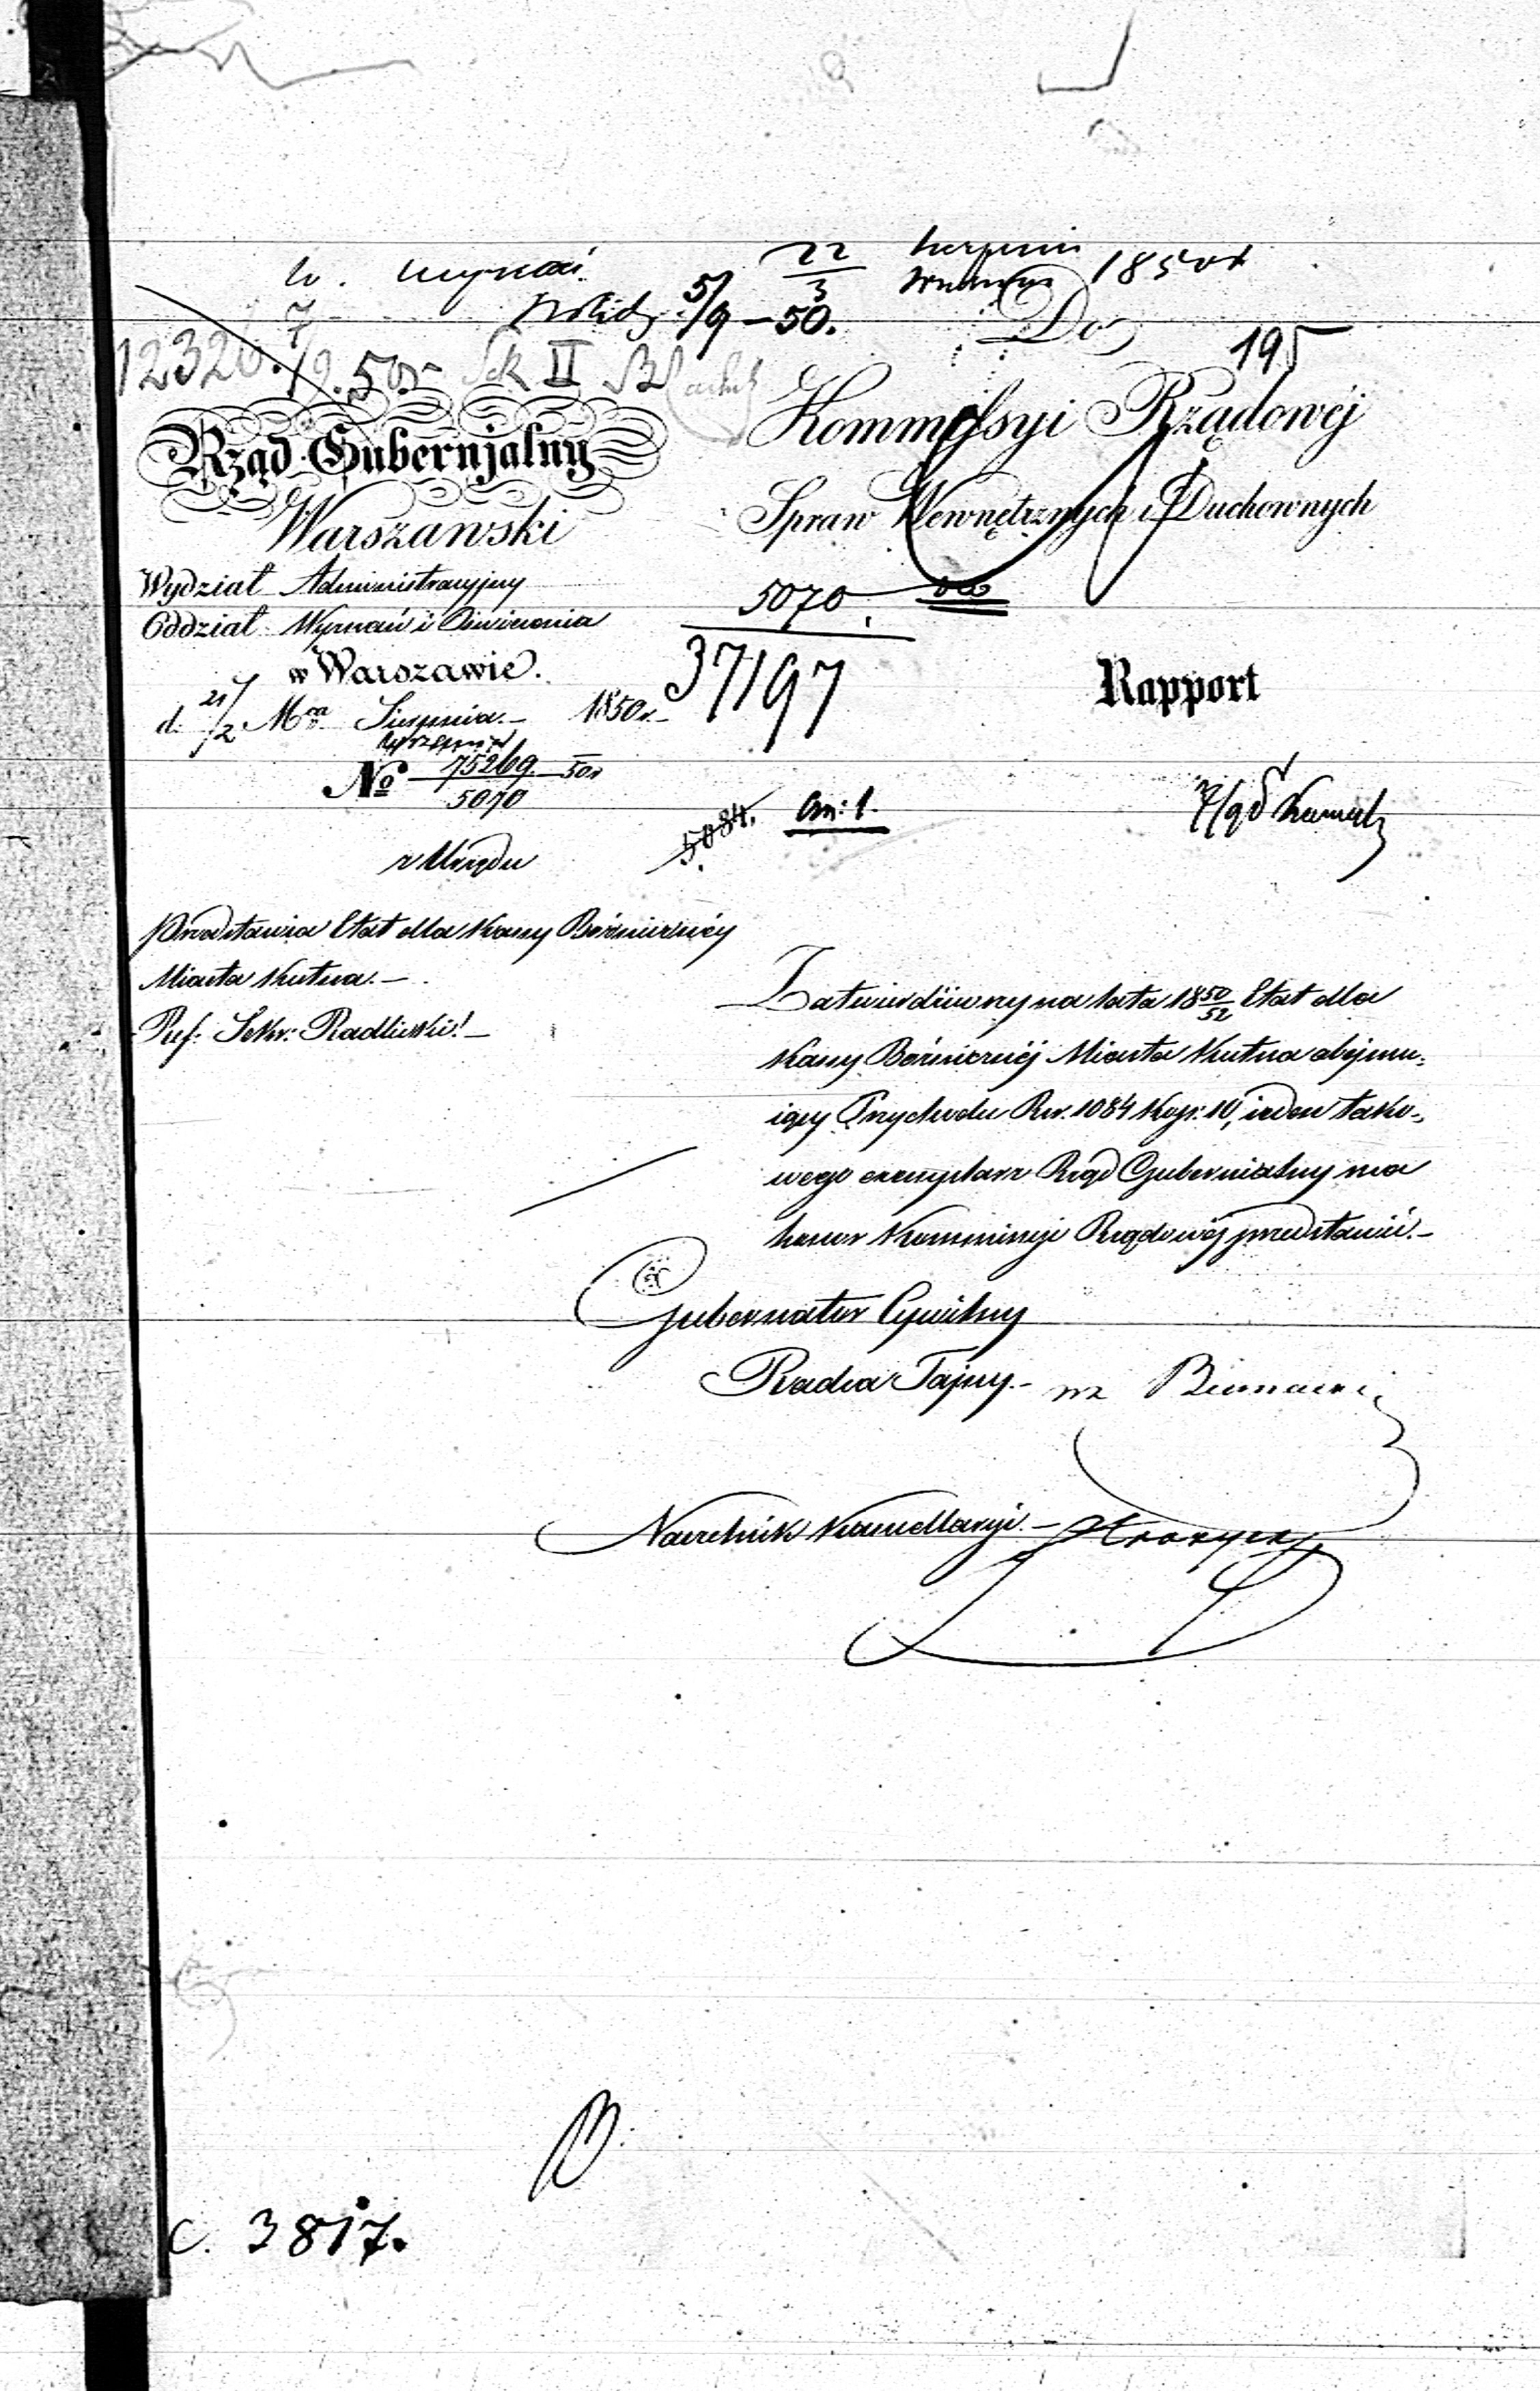 W. Wyznań 22/3 Sierpnia Września 1850 r
5/9 – 50.
Do
195
12320. 7/9. 50 r Sek II
Rząd Gubernjalny
Warszawski
Kommissyi Rządowéj
Spraw Wewnętrznych i Duchownych
Wydział Administracyjny
Oddział Wyznań i Oświecenia
w Warszawie.
d. 21/2 Mca Sierpnia.– 1850 r.–
Września
No 75269/5070 – 50 r
5070.
37197
Rapport
5084. An: 1.
7/9
z Urzędu
Przedstawia Etat dla Kassy Bóżniczéj
Miasta Kutna.–
Ref: Sekr: Radliński.–
Zatwierdzony na lata 18 50/52 Etat dla
Kassy Bóżniczéj Miasta Kutna obejmu-
iący Przychodu Rsr. 1084 Kop: 10, ieden tako-
wego exemplarz Rząd Gubernialny ma
honor Kommissyi Rządowéj przedstawić.–
Gubernator Cywilny
Radca Tajny.– wz
Naczelnik Kancellaryi.–
C. 3817.